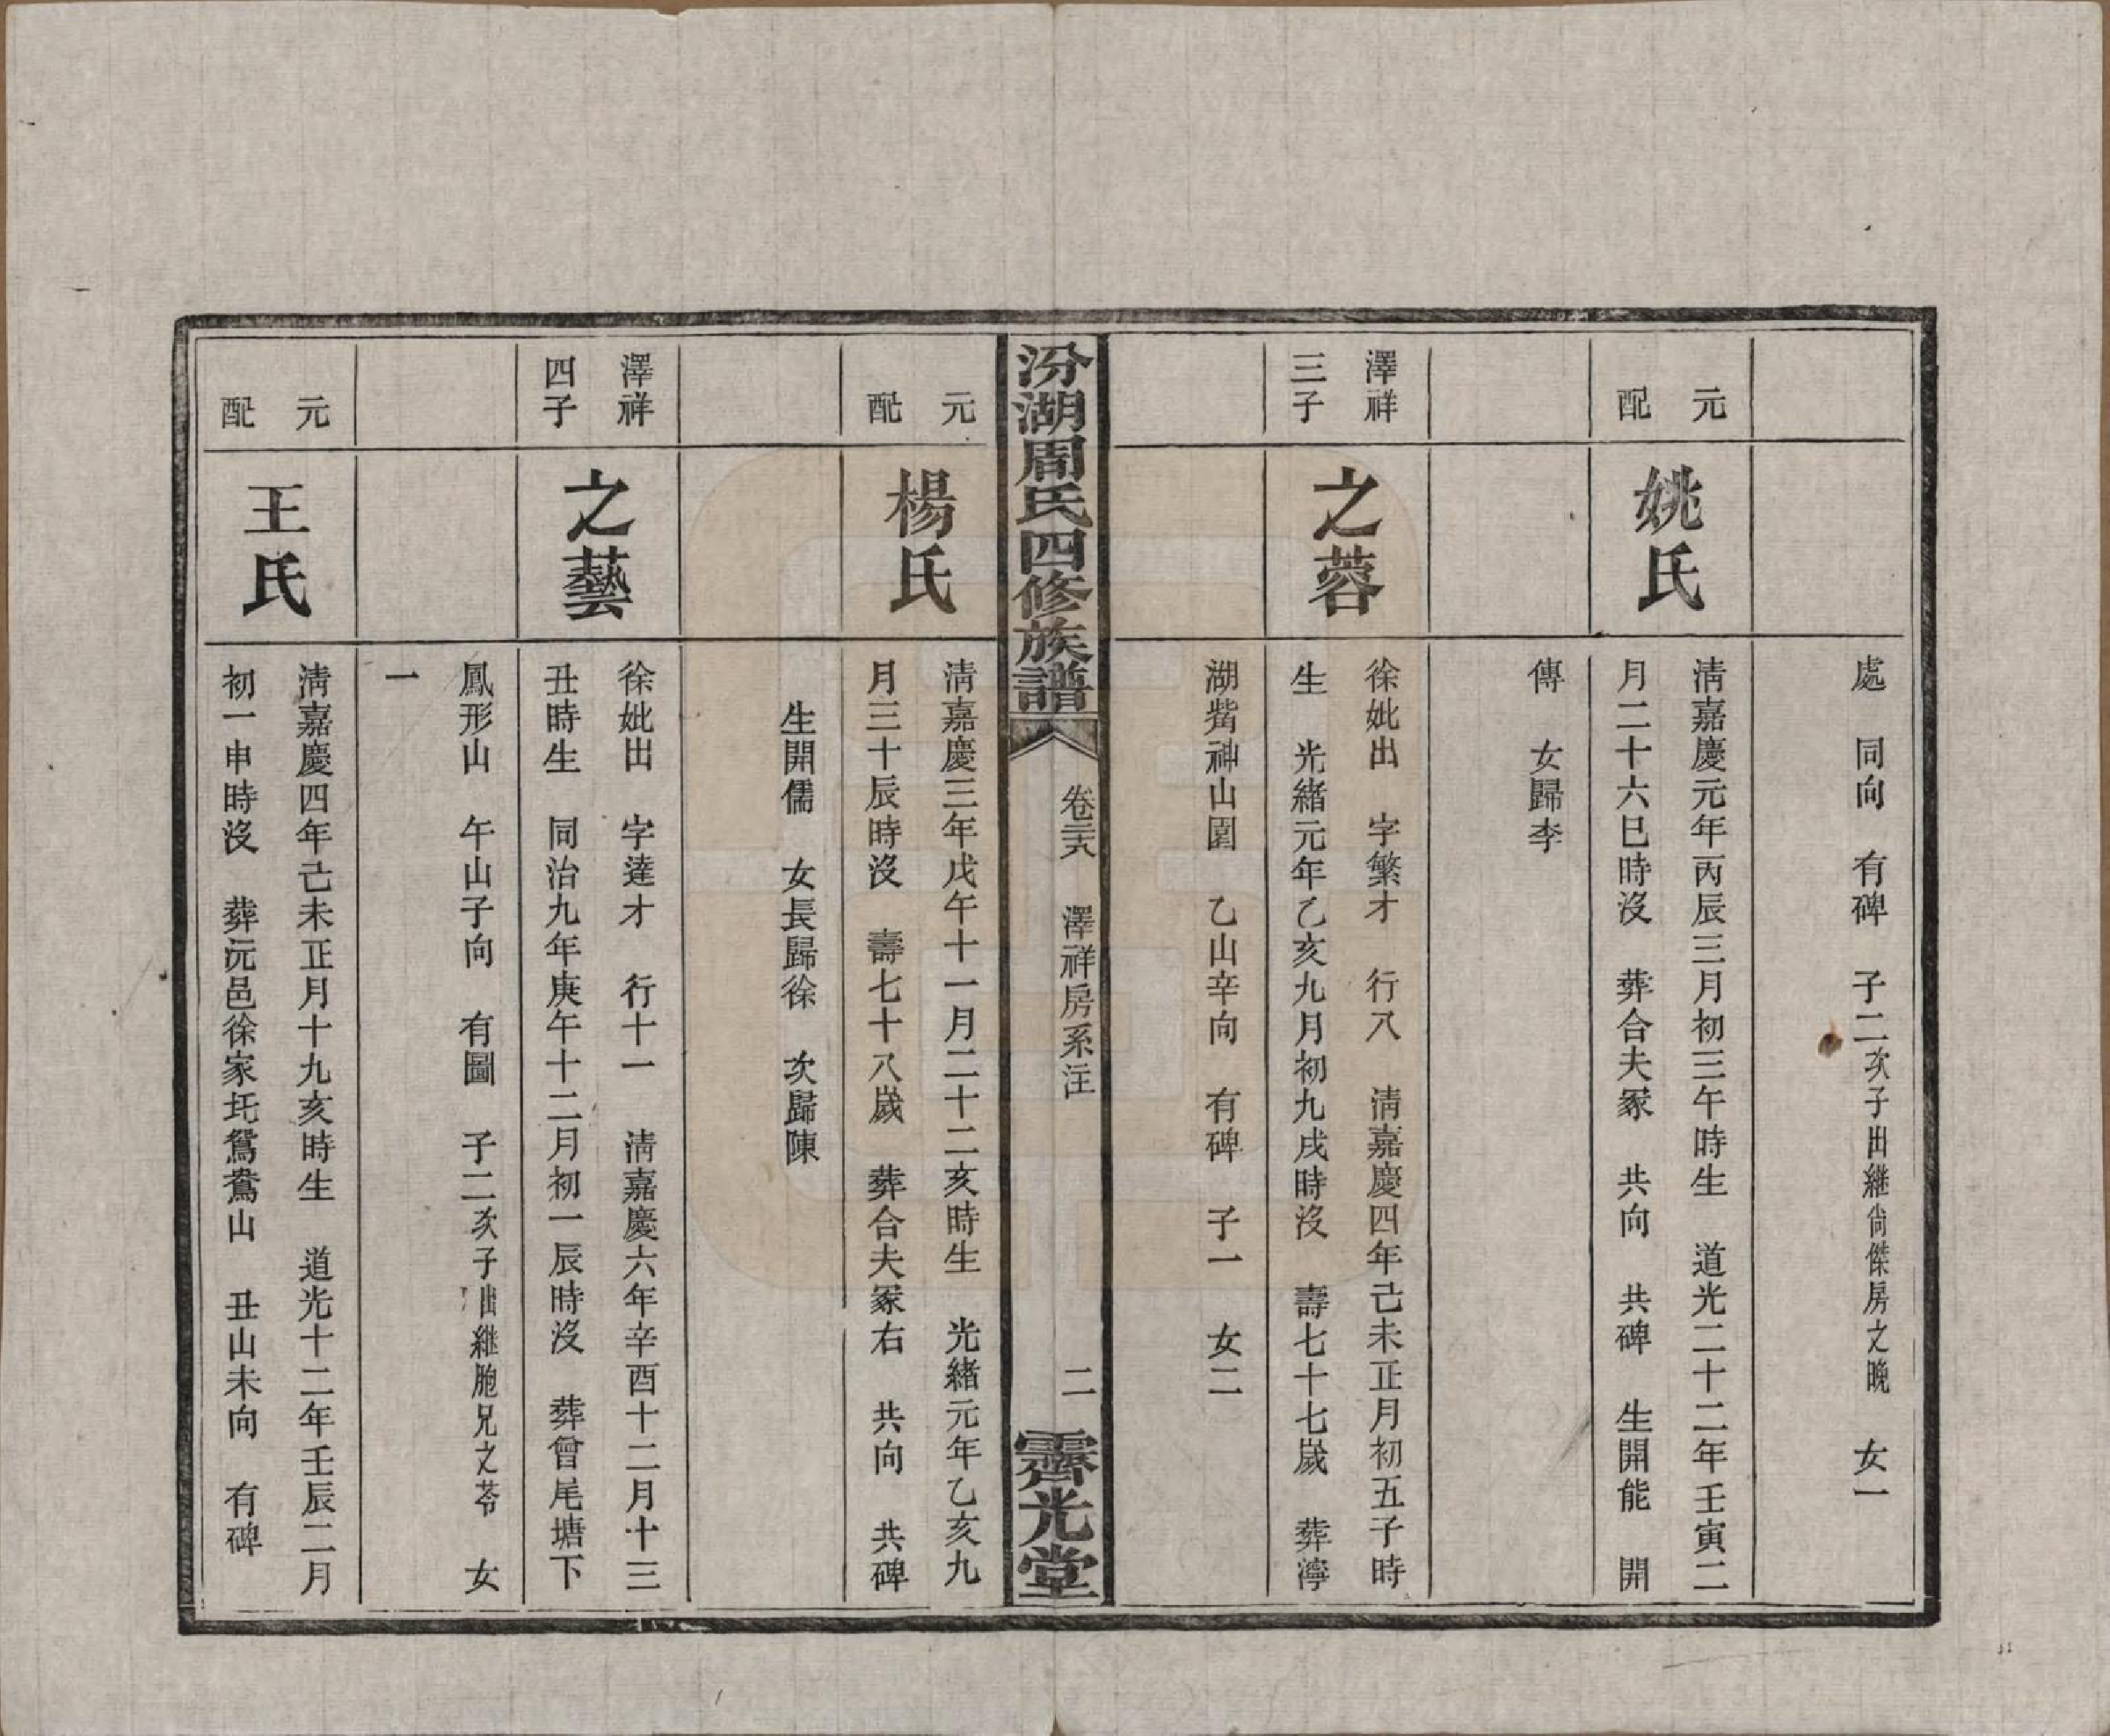 處　同向　有碑　子二次子出繼尙傑房之晚　女一
元
配
姚氏
淸嘉慶元年丙辰三月初三午時生　道光二十二年壬寅二
月二十六巳時沒　葬合夫冢　共向　共碑　生開能　開
傳　女歸李
澤祥
三子
之蓉
徐妣出　字繁才　行八　淸嘉慶四年己未正月初五子時
生　光緒元年乙亥九月初九戌時沒　壽七十七歲　葬濘
湖觜神山園　乙山辛向　有碑　子一　女二
汾湖周氏四修族譜
卷三六　澤祥房系注
二
霽光堂
元
配
楊氏
淸嘉慶三年戊午十一月二十二亥時生　光緒元年乙亥九
月三十辰時沒　壽七十八歲　葬合夫冢右　共向　共碑
生開儒　女長歸徐　次歸陳
澤祥
四子
之藝
徐妣出　字達才　行十一　淸嘉慶六年辛酉十二月十三
丑時生　同治九年庚午十二月初一辰時沒　葬曾尾塘下
鳳形山　午山子向　有圖　子二次子出繼胞兄之苓　女
一
元
配
王氏
淸嘉慶四年己未正月十九亥時生　道光十二年壬辰二月
初一申時沒　葬沅邑徐家圫鴛鴦山　丑山未向　有碑